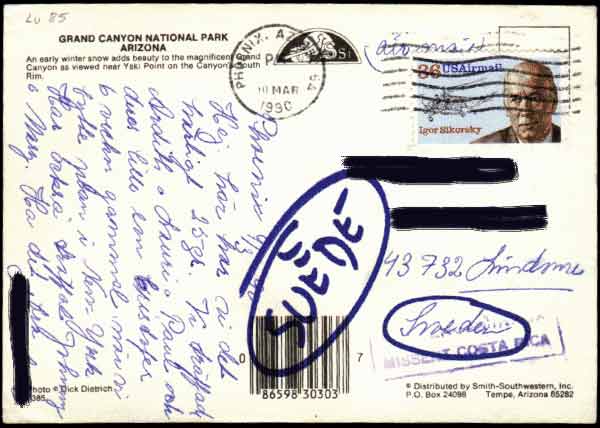 Lv 85
GRAND CANYON NATIONAL PARK
ARIZONA
An early winter snow adds beauty to the magnificent Grand
Canyon as viewed near Yaki Point on the Canyon's South
Rim.
PHOENIX, AZ
P
10 MAR
1990
airmail
36 USAirmail
Igor Sikorsky
Phoenix 9/3
Hej, här har vi det
härligt 25 gr. Vi träffade
o Paul och
lilla son
6 veckor gammal
i New York
Har också träffat Johnny
o Mary. Ha det
SUÈDE
43732 Lindome
Sweden
MISSENT COSTA RICA
0 86598 30303 7
Photo © Dick Dietrich
385
© Distributed by Smith-Southwestern, Inc.
P.O. Box 24098 Tempe, Arizona 85282